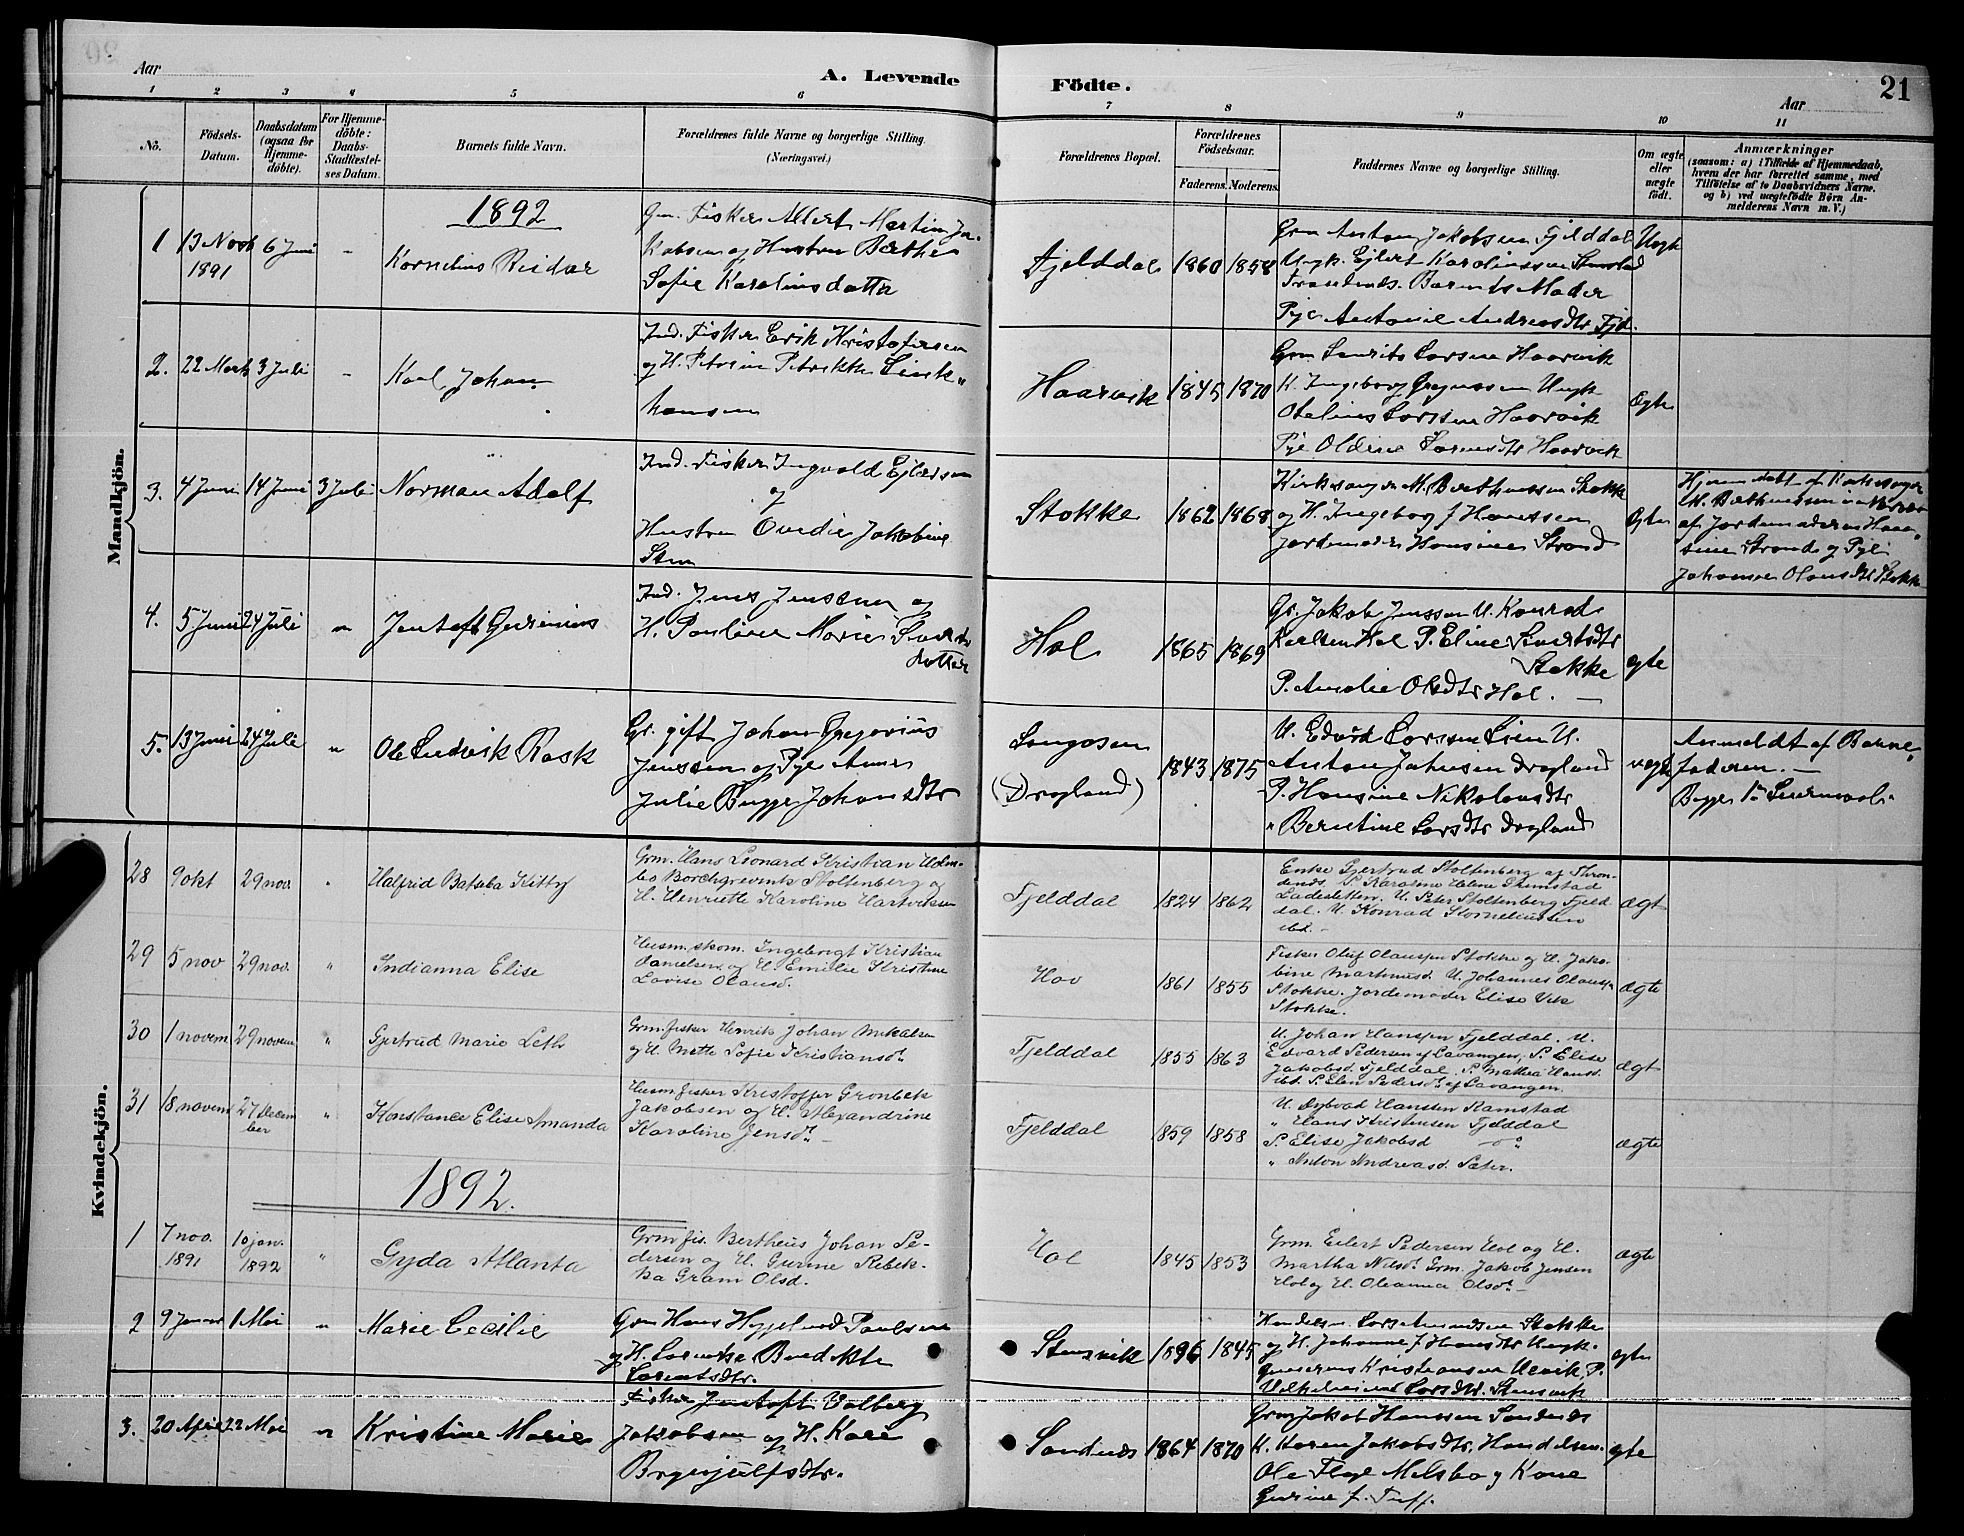 Aar
A. Levende
Födte.
Aar
21
1 2 3 4 5 6 7 8 9 10 11
No.
Födsels-
Datum.
Daabsdatum
(ogsaa for
Hjemme-
döbte).
For Hjemme-
döbte:
Daabs-
Stadfæstel-
ses Datum.
Barnets fulde Navn.
Forældrenes fulde Navne og borgerlige Stilling.
(Næringsvei.)
Forældrenes Bopæl.
Forældrenes
Födselsaar.
Faderens. Moderens.
Faddernes Navne og borgerlige Stilling.
Om ægte
eller
uægte
født.
Anmærkninger
(saasom: a) i Tilfælde af Hjemmedaab,
hvem der har forrettet samme, med
Tilföielse af to Daabsvidners Navne.
og b) ved uægtefödte Börn An-
melderens Navn m. V.)
Mandkjön.
1892
1
13 Novb 6 Juni
1891
Kornelius Reidar
Gm. Fisker Albert Martin Ja-
kobsen og Hustru Berthe
Sofie Karolinsdatter
Fjelddal 1860 1858
Grm Anton Jakobsen Fjelddal
Ungk. Ejlert Karolinssen
Barnets Moder
Pige Antonie Andreasdtr Fjd.
Uægte
2. 22 Marts 3 Juli
Karl Johan
Ind. Fisker Erik Kristofersen
og H. Petrikke
hansen
Haarvik 1845 1870
Grm Laurits Larsen Haarvik
K. Ingeborg Ungk
Larssen Haarvik
Pige Oldine Larsdtr Haarvik
Ægte
3. 4 Juni 14 Juni 3 Juli
Norman Adolf
Ind. Fisker Ingvald Ejlersen
og
Hustru Ovedie Jakobine
Sten
Stokke 1862 1868
Kirkesanger M. Bertheussen Stokke
og H. Ingeborg J Hanssen
Jordemoder Hansine Strand
Ægte
Hjemmedøbt af Kirkesanger
M. Bertheussen
af Jordemoderen Han-
sine Strand og Pige
Johanna Olausdtr Stokke
4. 5 Juni 24 Juli "
Jentoft Gurinius
Ind. Jens Jenssen og
H. Pauline Marie
datter
Hol 1865 1869
Gr. Jakob Jenssen U. Konrad
Karlsen Hol P. Eline Sivertsdtr
Stokke
P. Amalie Olsdtr Hol.
ægte
5. 13 Juni 24 Juli "
Ole Ludvik Rask
Gr. gift Johan Gregorius
Jenssen og Pige Anne
Julie Bugge Johansdtr
(Dragland) 1843 1875
U. Edvard Larssen Lien U.
Anton Johnsen Dragland
P. Hansine Nikolausdtr
" Berntine Larsdtr Dragland
uægte
Anmeldt af Barne-
faderen.
Kvindekjön.
28 9 okt 29 nov "
Halfrid Batseba Kitty
Grm. Hans Leonard Kristian Holm-
bo Borchgrevink Stoltenberg og
H. Henriette Karoline Hartviksen
Fjelddal 1824 1862
Enke Gjertrud Stoltenberg af Thron-
denes. P. Karoline Helene
U. Peter Stoltenberg Fjeld
dal. U. Konrad Kornelinssen
ibd.
ægt
29 5 nov 29 nov. "
Indianna Elise
Husm. skom. Ingebrigt Kristian
Danielsen og H. Emilie Kristine
Lovise Olausd.
Hov 1861 1855
Fisker Oluf Olaussen Stokke og H. Jako-
bine Martinusd. U. Johannes Olauss.
Stokke. Jordemoder Elise Vik
Stokke.
ægte
30 1 novem 29 novem "
Gjertrud Marie Leth
Grm. fisker Henrik Johan Mikalsen
og H. Mette Sofie Kristiansd.
Fjelddal 1855 1863
U. Johan Hanssen Fjelddal. U.
Edvard Pedersen af Lavangen. P. Elise
Jakobsd. Fjelddal. P. Mathea Hansd.
ibd. P. Elen Pedersd. af Lavangen.
ægt
31 18 novem 27 Decem "
ber
Konstance Elise Amanda
Husm. fisker Kristoffer Gronbek
Jakobsen og H. Alexandrine
Karoline Jensd.
Fjelddal 1859 1858
U. Hansen Ramstad
" Hans Kristensen Fjelddal
P. Elise Jakobsd
" Anton Andreasd. Sæter.
ægte
1892.
1 7 nov. 10 jan.
1891 1892 "
Gyda Atlanta
Grm fis. Bertheus Johan Pe-
dersen og H. Gurine Rebek-
ka Gram Olsd.
Hol 1845 1853
Grm. Eilert Pedersen Hol og H.
Martha Nilsd. Grm. Jakob Jensen
Hol og H. Oleanna Olsd.
ægte
2 9 Januar 1 Mai "
Marie Cecilie
Grm Hans Paulsen
og H. Lorentse Benedikte
Lorentsdtr.
Stensvik 1845
Handelsm. Lars Amundsen Stokke
og H. Johanne J Hansdtr Ungk.
Kristiansen P.
Vilhelmine Larsdtr. Stensvik
ægte
3. 20 April 22 Mai "
Kristine Marie
Fisker Jentoft Volberg
Jakobsen og H. Kari
Brynjulfsdtr.
Sandnes 1864 1870
Grm Jakob Hanssen Sandnes
K. Karen Jakobsdtr. Handelsm.
Ole Melsbo og Kone
Gurine f. Tuff.
ægte